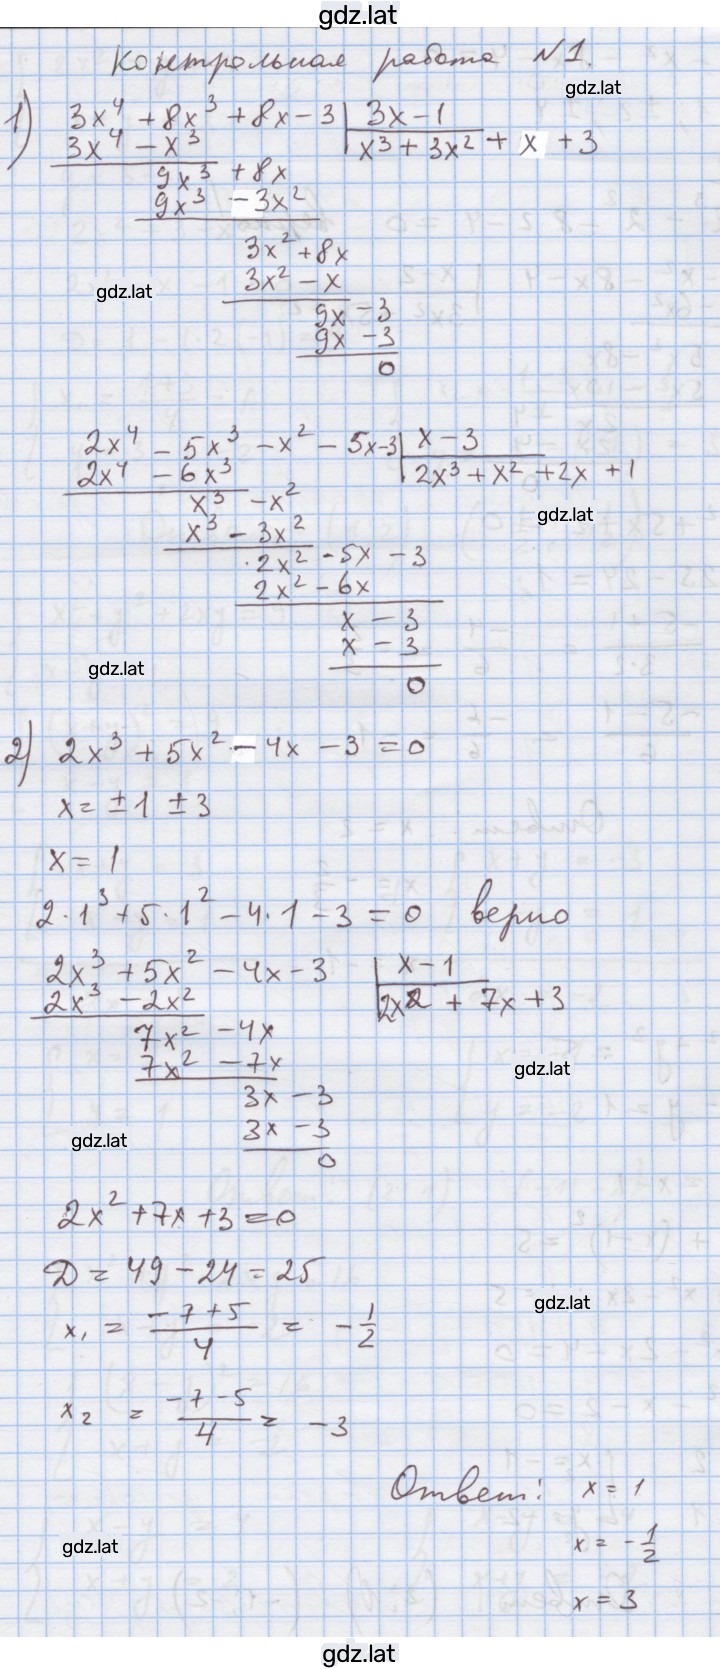 gdz.lat
Контрольная работа №1.
gdz.lat
1) 3x⁴ + 8x³ + 8x - 3 | 3x - 1
3x⁴ - x³ x³ + 3x² + x + 3
9x³ + 8x
9x³ - 3x²
3x² + 8x
3x² - x
gdz.lat
9x - 3
9x - 3
0
2x⁴ - 5x³ - x² - 5x - 3 | x - 3
2x⁴ - 6x³ 2x³ + x² + 2x + 1
x³ - x²
gdz.lat
x³ - 3x²
2x² - 5x - 3
2x² - 6x
x - 3
x - 3
gdz.lat
0
2) 2x³ + 5x² - 4x - 3 = 0
x = ±1 ±3
x = 1
2·1³ + 5·1² - 4·1 - 3 = 0 верно
2x³ + 5x² - 4x - 3 | x - 1
2x³ - 2x² 2x² + 7x + 3
7x² - 4x
7x² - 7x
gdz.lat
3x - 3
3x - 3
gdz.lat
0
2x² + 7x + 3 = 0
D = 49 - 24 = 25
gdz.lat
x₁ = (-7+5)/4 = -1/2
x₂ = (-7-5)/4 = -3
Ответ: x = 1
x = -1/2
gdz.lat
x = 3
gdz.lat